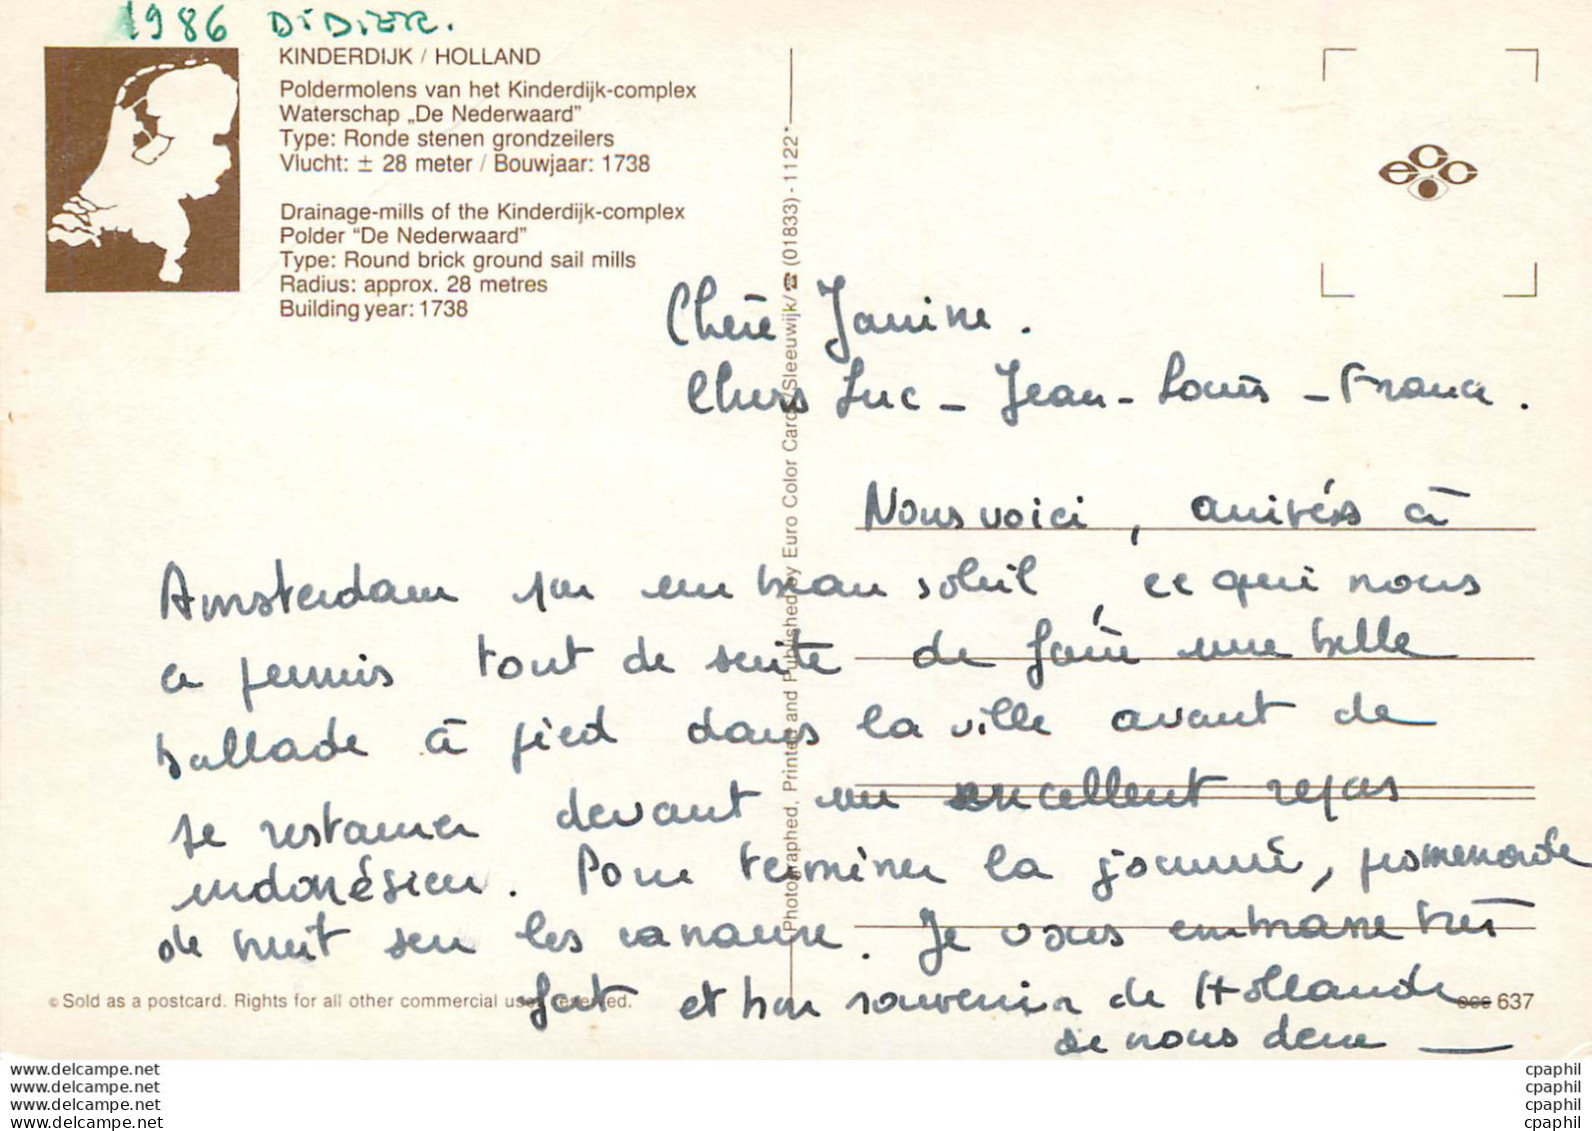 1986 DIDIER.
KINDERDIJK / HOLLAND
Poldermolens van het Kinderdijk-complex
Waterschap „De Nederwaard"
Type: Ronde stenen grondzeilers
Vlucht: ± 28 meter / Bouwjaar: 1738
Drainage-mills of the Kinderdijk-complex
Polder "De Nederwaard"
Type: Round brick ground sail mills
Radius: approx. 28 metres
Building year: 1738
Photographed, Printed and Published by Euro Color Cards/Sleeuwijk/☎ (01833) - 1122*
ecc
Chère Janine.
Chers Luc - Jean-Louis - France.
Nous voici, arrivés à
Amsterdam par un beau soleil, ce qui nous
a permis tout de suite de faire une belle
ballade à pied dans la ville avant de
se restaurer devant un excellent repas
indonésien. Pour terminer la journée, promenade
de nuit sur les canaux. Je vous embrasse très
fort et bon souvenir de Hollande
de nous deux
© Sold as a postcard. Rights for all other commercial uses reserved.
ecc 637
www.delcampe.net
www.delcampe.net
www.delcampe.net
www.delcampe.net
cpaphil
cpaphil
cpaphil
cpaphil